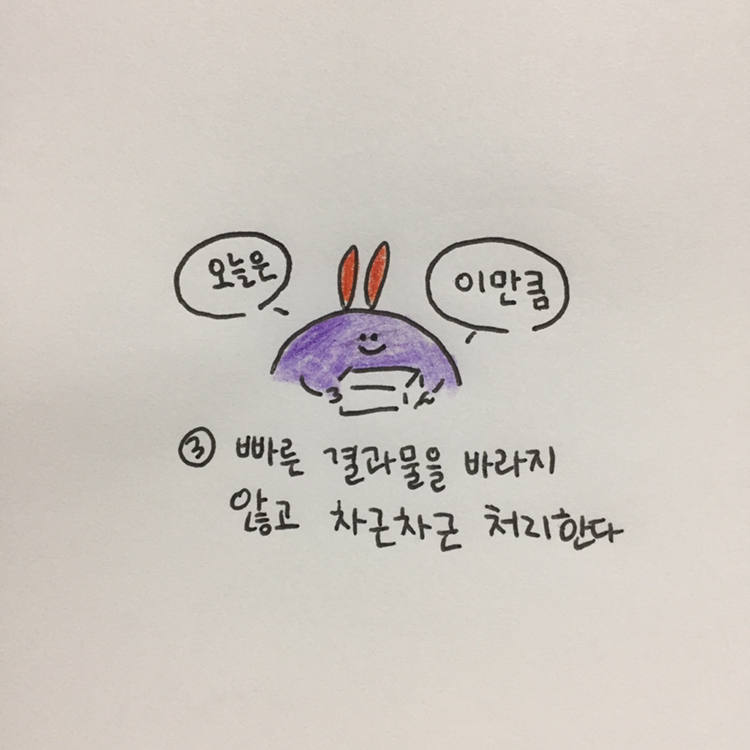 오늘은
이만큼
③ 빠른 결과물을 바라지
않고 차근차근 처리한다